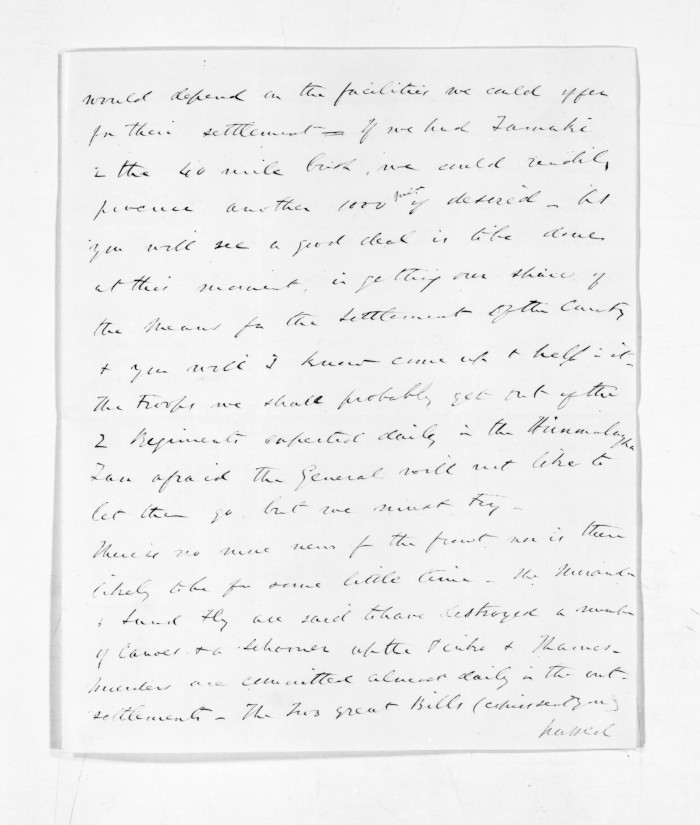 would depend on the facilities we could offer
for their settlement = If we had Tamaki
& the 40 mile bush, we could readily
procure another 1000 men if desired - but
you will see a good deal is to be done
at this moment, in getting our share of
the means for the settlement of the Country
& you will I know come up & help in it -
the troops we shall probably get out of the
2 Regiments expected daily in the Himmalayha
I am afraid the General will not like to
let them go but we must try -
There is no more news f the front nor is there
likely to be for some little time - The Miranda
& Sand Fly are said to have destroyed a number
of Canoes & a Schooner up the Piako & Thames -
Murders are committed almost daily in the out-
settlements - The two great Bills (copies sent you)
passed